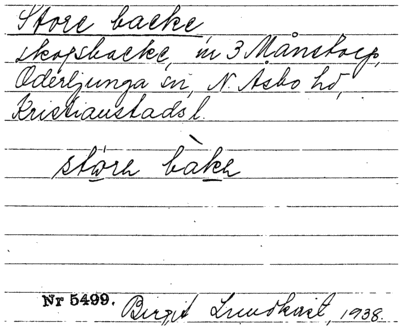 Store backe,
skogsbacke, in 3 Månstorp,
Oderljunga sn, N. Åsbo hd,
Kristianstads l.
störe bàke
Nr 5499. Birgit Lundkvist, 1938.